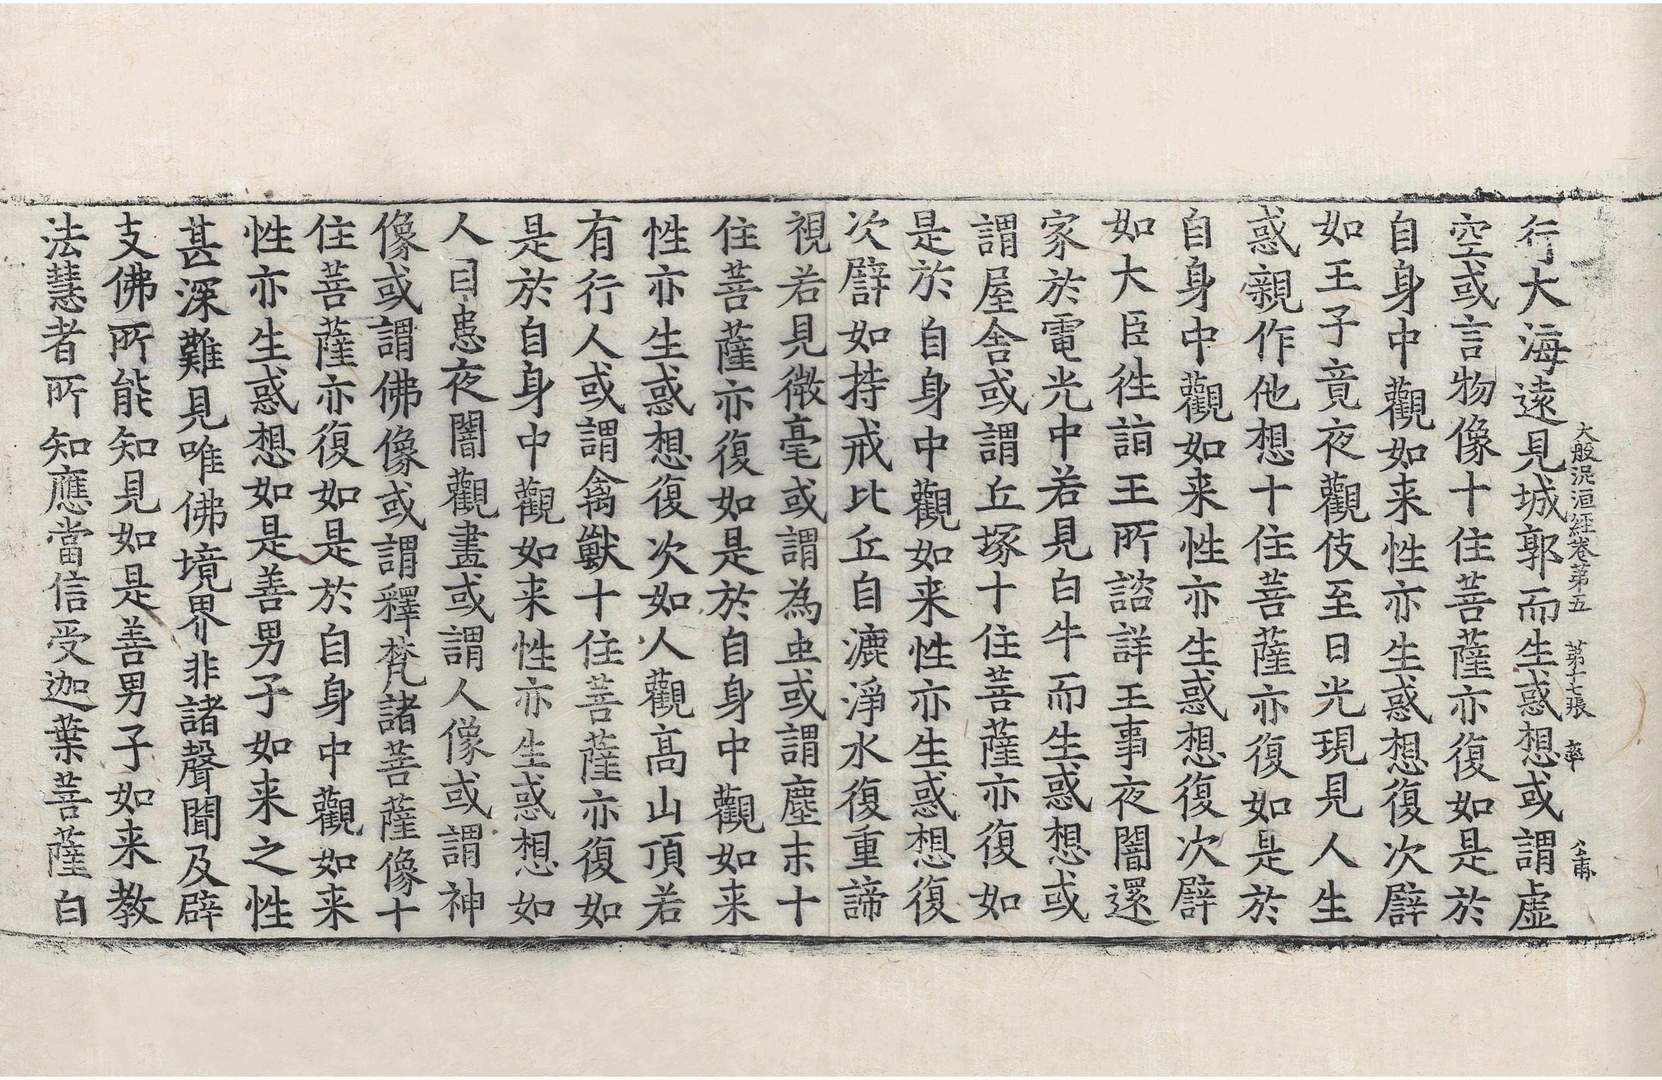 大般泥洹經卷第五 第十七張 率 公甫
行大海遠見城郭而生惑想或謂虛
空或言物像十住菩薩亦復如是於
自身中觀如来性亦生惑想復次譬
如王子竟夜觀伎至日光現見人生
惑親作他想十住菩薩亦復如是於
自身中觀如来性亦生惑想復次譬
如大臣徃詣王所諮詳王事夜闇還
家於電光中若見白牛而生惑想或
謂屋舎或謂丘塚十住菩薩亦復如
是於自身中觀如来性亦生惑想復
次譬如持戒比丘自漉淨水復重諦
視若見微毫或謂為虫或謂塵末十
住菩薩亦復如是於自身中觀如来
性亦生惑想復次如人觀髙山頂若
有行人或謂禽獸十住菩薩亦復如
是於自身中觀如来性亦生惑想如
人目患夜闇觀畫或謂人像或謂神
像或謂佛像或謂釋梵諸菩薩像十
住菩薩亦復如是於自身中觀如来
性亦生惑想如是善男子如来之性
甚深難見唯佛境界非諸聲聞及辟
支佛所能知見如是善男子如来教
法慧者所知應當信受迦葉菩薩白